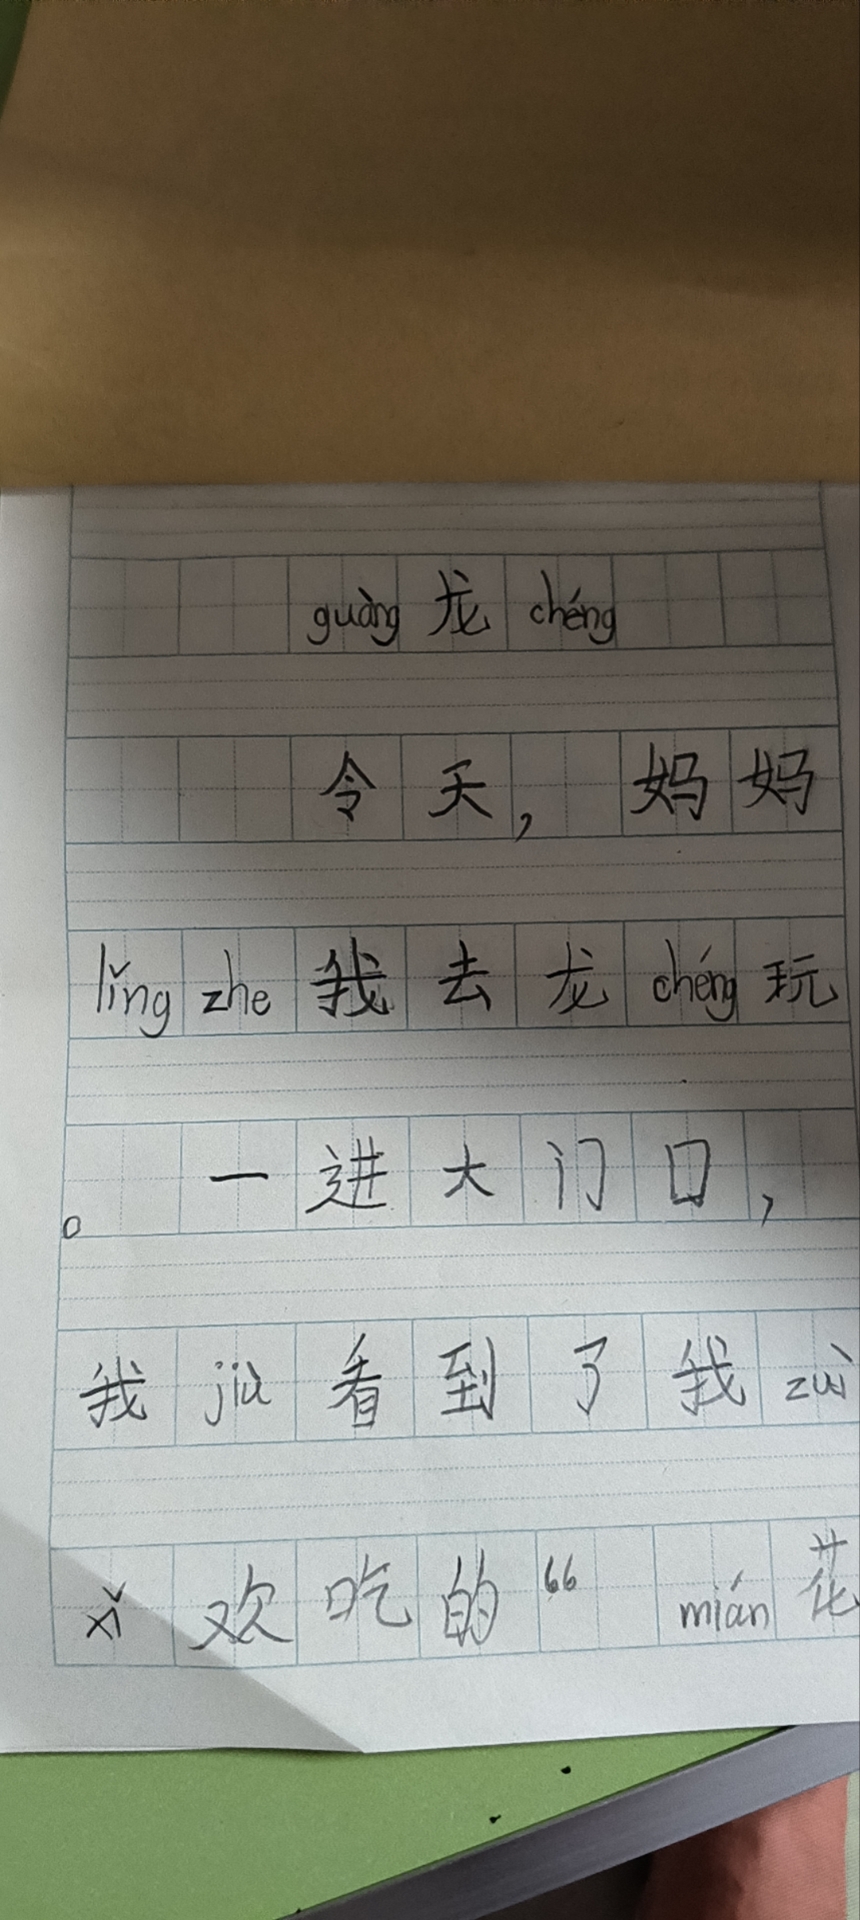 guàng龙chéng
令天，妈妈
lǐngzhe我去龙chéng玩
。一进大门口，
我jiù看到了我zuì
xǐ欢吃的“mián花